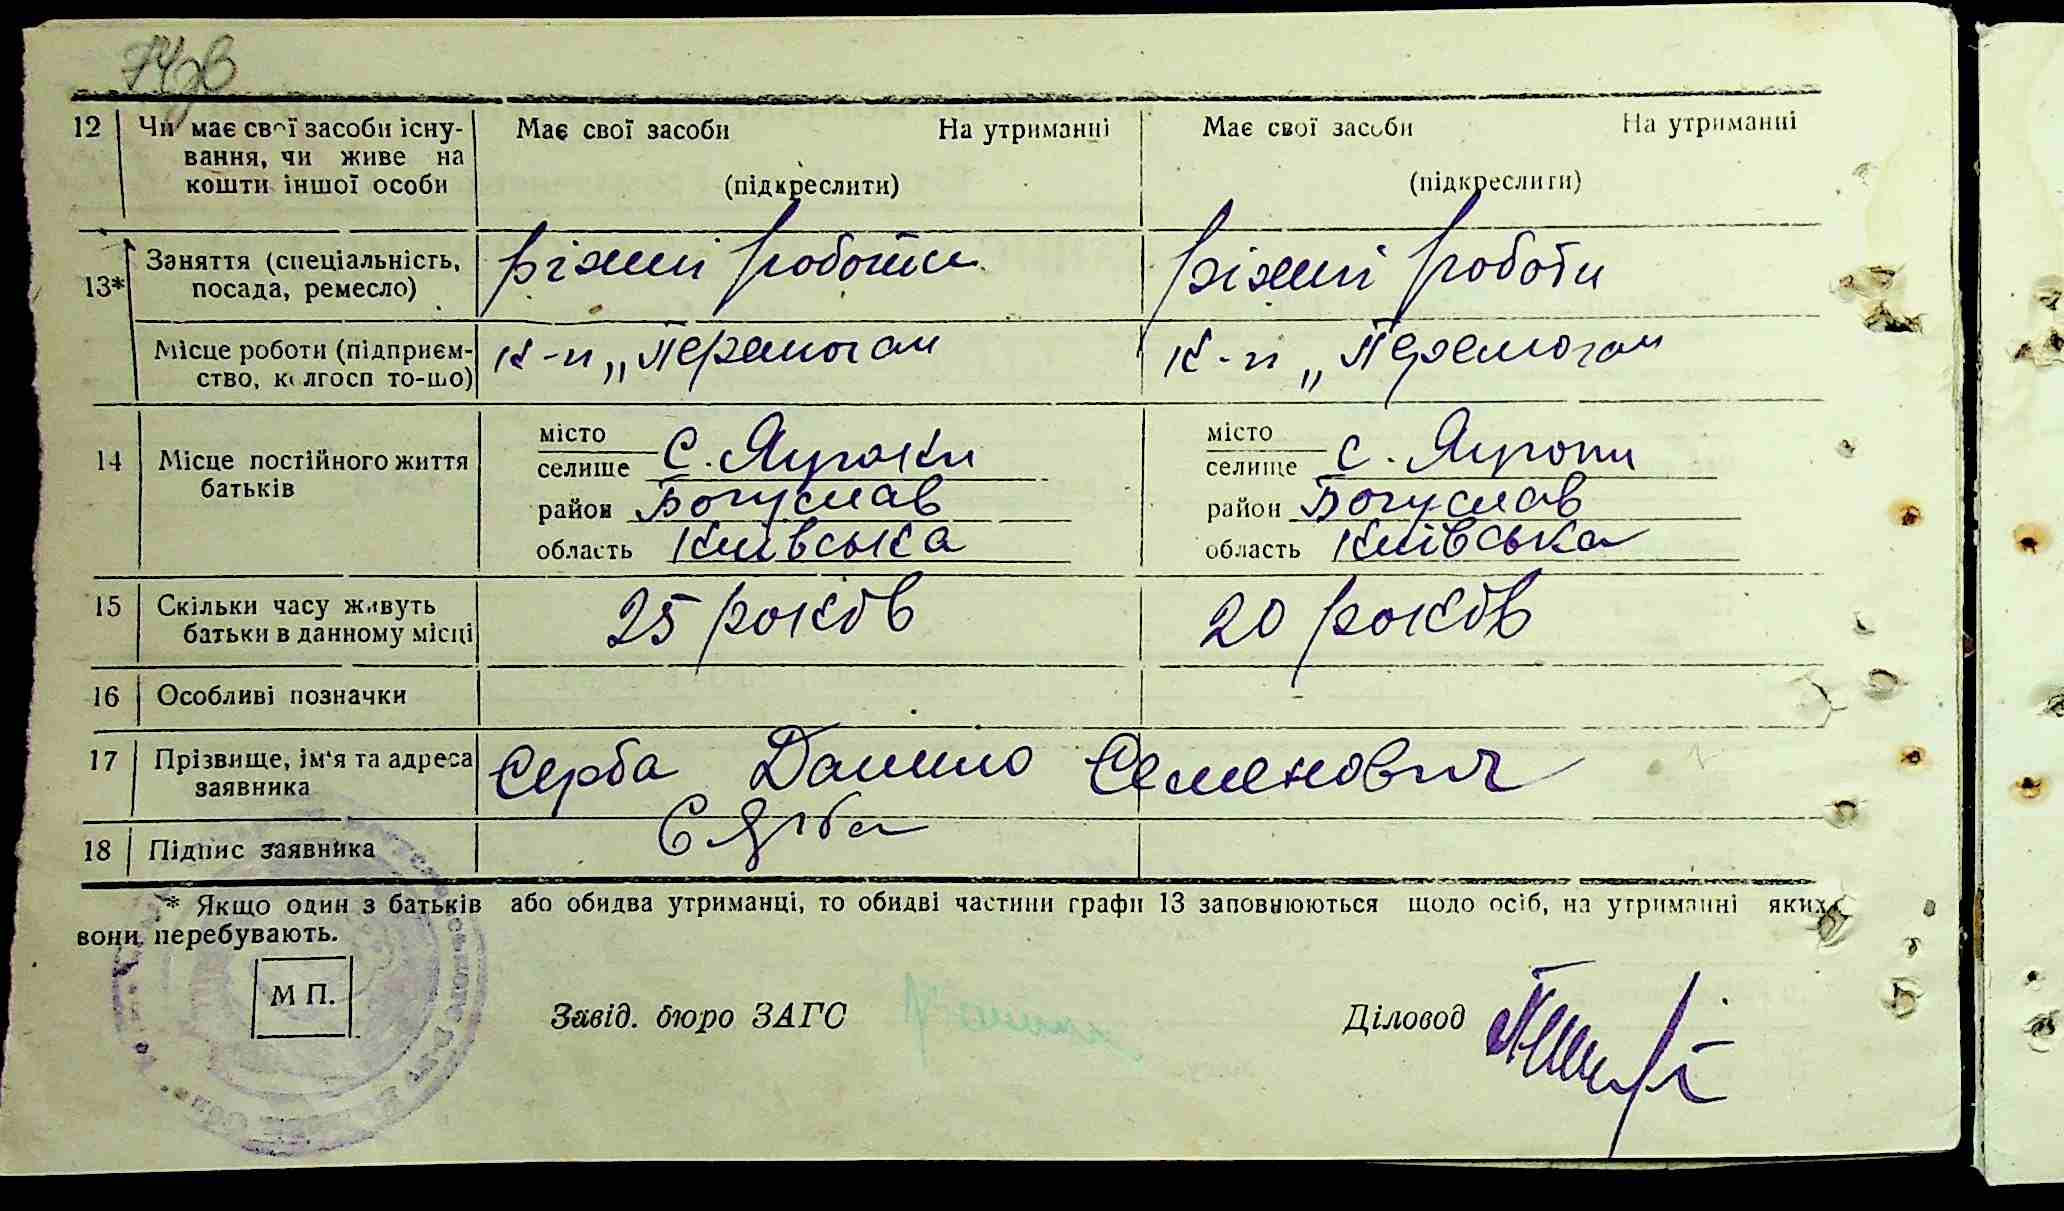 74зв
12 Чи має свої засоби існу- Має свої засоби На утриманні Має свої засоби На утриманні
вання, чи живе на
кошти іншої особи (підкреслити) (підкреслити)
13* Заняття (спеціальність, різниі роботи різниі роботи
посада, ремесло)
Місце роботи (підприєм- к-п „Перемога" к-п „Перемога"
ство, колгосп то-що)
14 Місце постійного життя батьків
місто селище с. місто селище с.
район Богуслав район Богуслав
область Київська область Київська
15 Скільки часу живуть 25 років 20 років
батьки в данному місці
16 Особливі позначки
17 Прізвище, ім'я та адреса Серба Данило Семенович
заявника
18 Підпис заявника Серба
* Якщо один з батьків або обидва утриманці, то обидві частини графи 13 заповнюються щодо осіб, на утриманні яких
вони перебувають.
М П. Завід. бюро ЗАГС Діловод